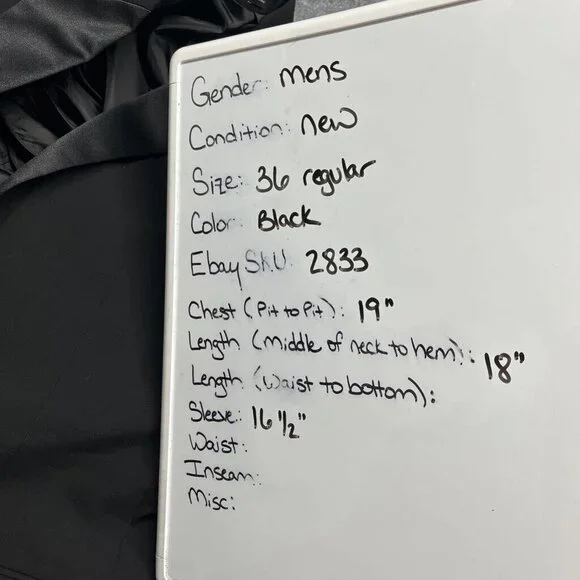 Gender: mens
Condition: new
Size: 36 regular
Color: Black
Ebay SKU: 2833
Chest (Pit to Pit): 19"
Length (Middle of neck to hem): 18"
Length (Waist to bottom):
Sleeve: 16 1/2"
Waist:
Inseam:
Misc: